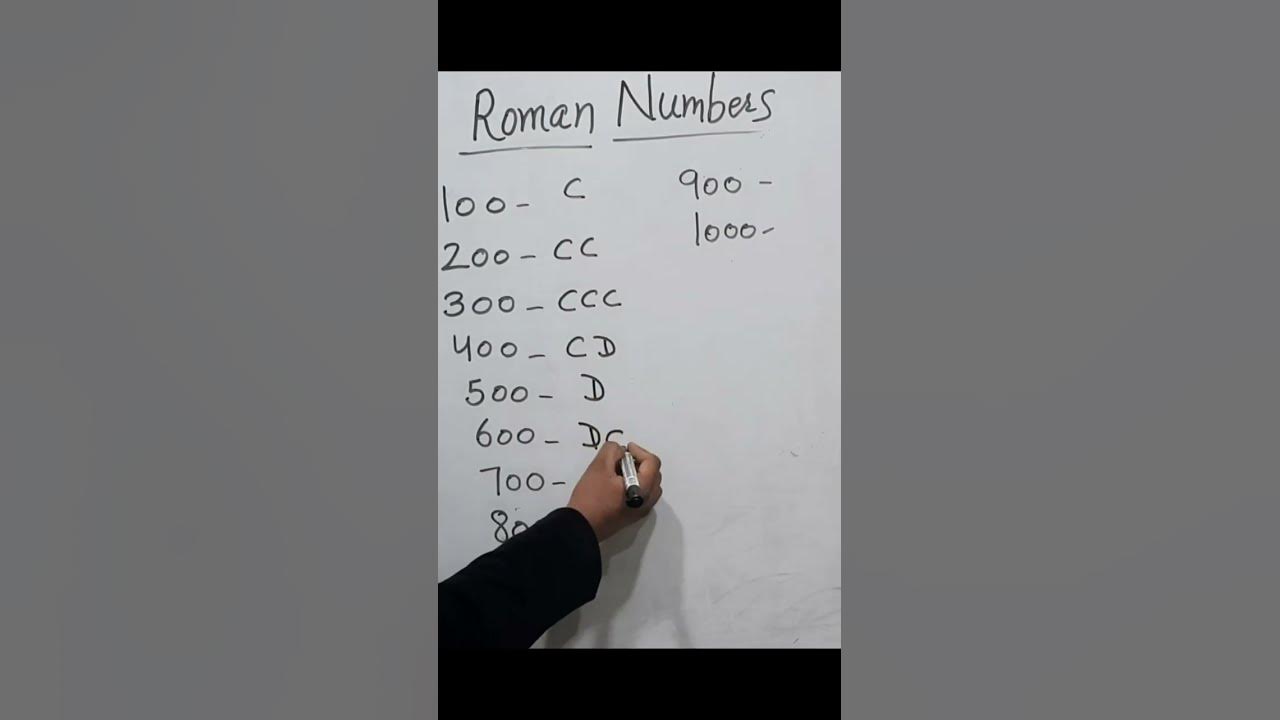 Roman Numbers
100 - C
200 - CC
300 - CCC
400 - CD
500 - D
600 - DC
700 -
80
900 -
1000 -